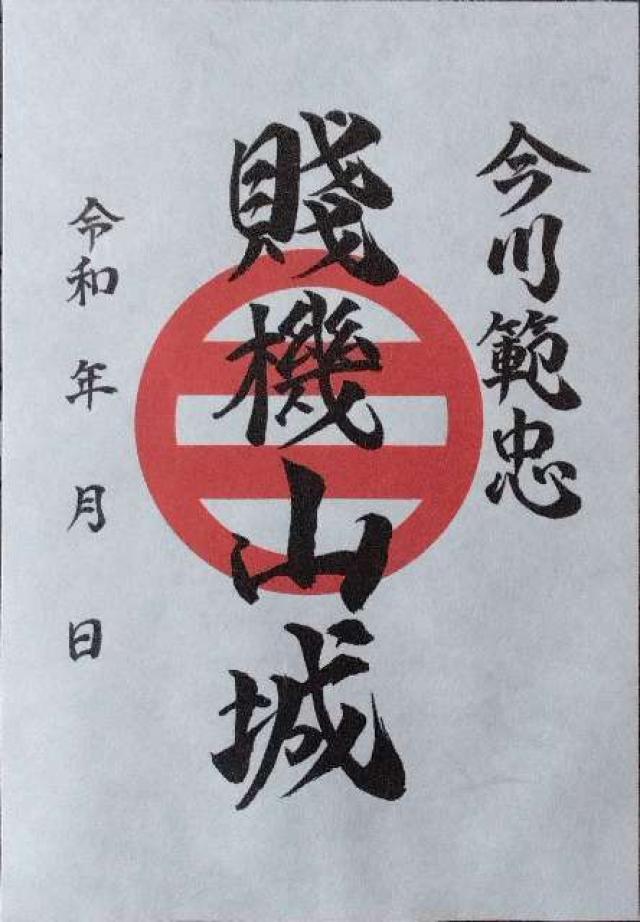 今川範忠
賤機山城
令和 年 月 日